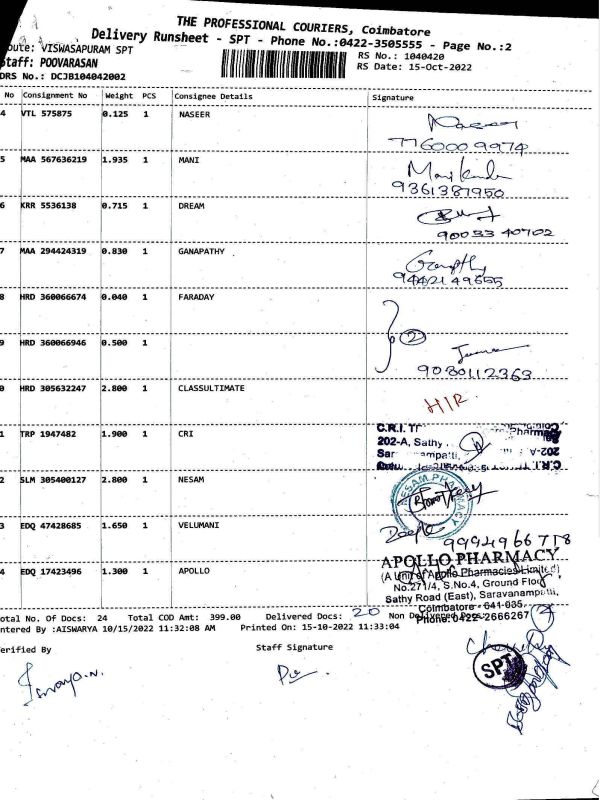 THE PROFESSIONAL COURIERS, Coimbatore
Delivery Runsheet - SPT - Phone No.:0422-3505555 - Page No.:2
oute: VISWASAPURAM SPT
Staff: POOVARASAN
DRS No.: DCJB104042002
RS No.: 1040420
RS Date: 15-Oct-2022
No Consignment No Weight PCS Consignee Details Signature
4 VTL 575875 0.125 1 NASEER
7760009974
5 MAA 567636219 1.935 1 MANI
9361387950
6 KRR 5536138 0.715 1 DREAM
90033 40702
7 MAA 294424319 0.830 1 GANAPATHY
9442149655
8 HRD 360066674 0.040 1 FARADAY
2
9 HRD 360066946 0.500 1
9080112363
0 HRD 305632247 2.800 1 CLASSULTIMATE
H/R.
1 TRP 1947482 1.900 1 CRI
C.R.I. Tr
202-A, Sathy
2 SLM 305400127 2.800 1 NESAM
NESAM PHARMACY
3 EDQ 47428685 1.650 1 VELUMANI
9994966778
4 EDQ 17423496 1.300 1 APOLLO
APOLLO PHARMACY
(A Unit of Apollo Pharmacies Limited)
No.271/4, S.No.4, Ground Floor
Sathy Road (East), Saravanampatti,
Coimbatore - 641 035.
Phone: 0422-2666267
otal No. Of Docs: 24 Total COD Amt: 399.00 Delivered Docs: 20 Non Delivered Docs:
ntered By :AISWARYA 10/15/2022 11:32:08 AM Printed On: 15-10-2022 11:33:04
erified By Staff Signature
SPT